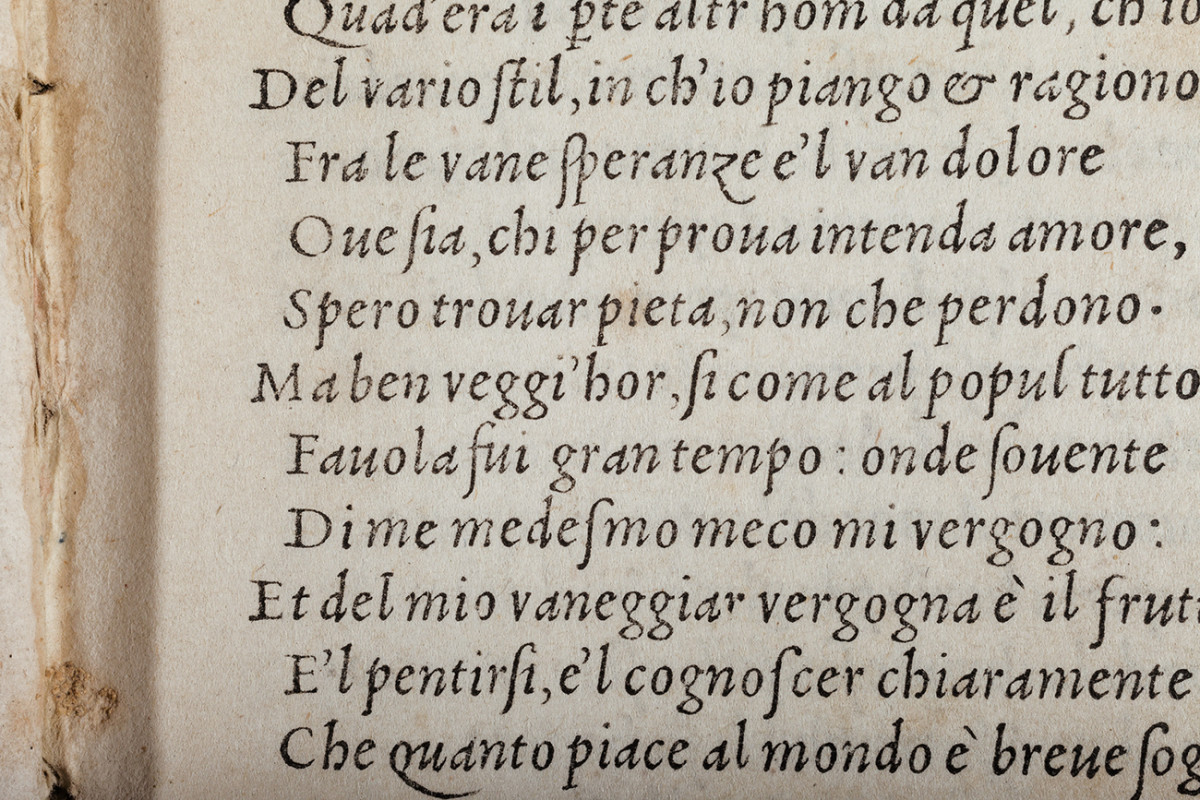 Quad'era i pte altr'hom da quel, ch'io
Del vario ſtil, in ch'io piango & ragiono
Fra le vane ſperanze e'l van dolore
Oue ſia, chi per proua intenda amore,
Spero trouar pieta, non che perdono.
Ma ben veggi'hor, ſi come al popul tutto
Fauola fui gran tempo: onde ſouente
Di me medeſmo meco mi vergogno:
Et del mio vaneggiar vergogna è il frutt
E'l pentirſi, e'l cognoſcer chiaramente
Che quanto piace al mondo è breue ſog